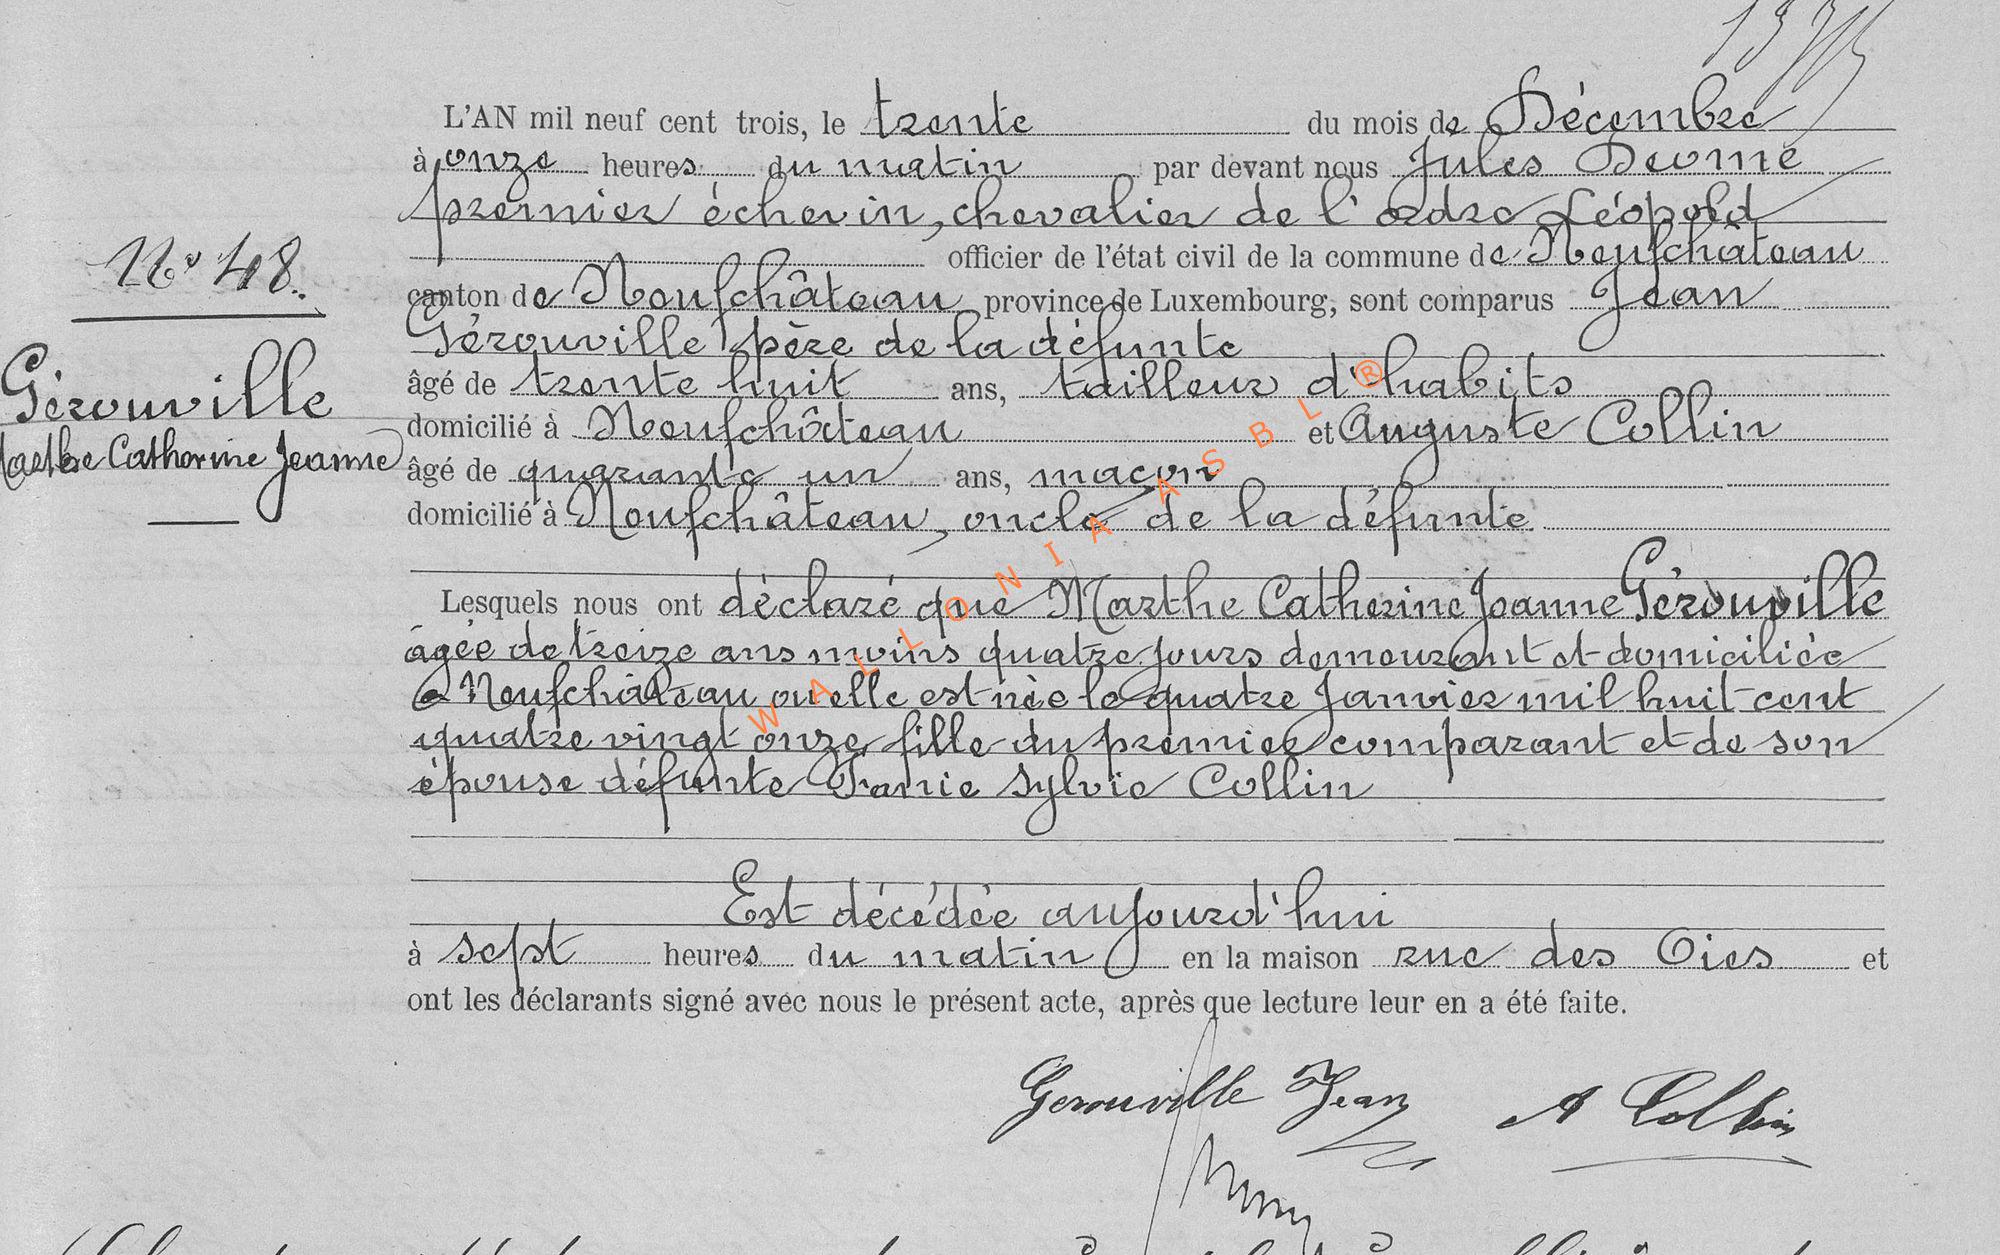 L'AN mil neuf cent trois, le trente du mois de Décembre
à onze heures du matin par devant nous Jules Deome
premier échevin, chevalier de l'ordre Léopold
officier de l'état civil de la commune de Neufchâteau
N° 48.
canton de Neufchâteau province de Luxembourg, sont comparus Jean
Gérouville père de la défunte
Gérouville
âgé de trente huit ans, tailleur d'habits
domicilié à Neufchâteau et Auguste Collin
Marthe Catherine Jeanne
âgé de quarante un ans, maçon
domicilié à Neufchâteau, oncle de la défunte
Lesquels nous ont déclaré que Marthe Catherine Jeanne Gérouville
âgée de treize ans moins quatre jours demeurant et domiciliée
à Neufchâteau ou elle est née le quatre Janvier mil huit cent
quatre vingt onze, fille du premier comparant et de son
épouse défunte Fanie Sylvie Collin
Est décédée aujourd'hui
à sept heures du matin en la maison rue des Oies et
ont les déclarants signé avec nous le présent acte, après que lecture leur en a été faite.
Gerouville Jean A Collin
WALLONIA ASBL ®